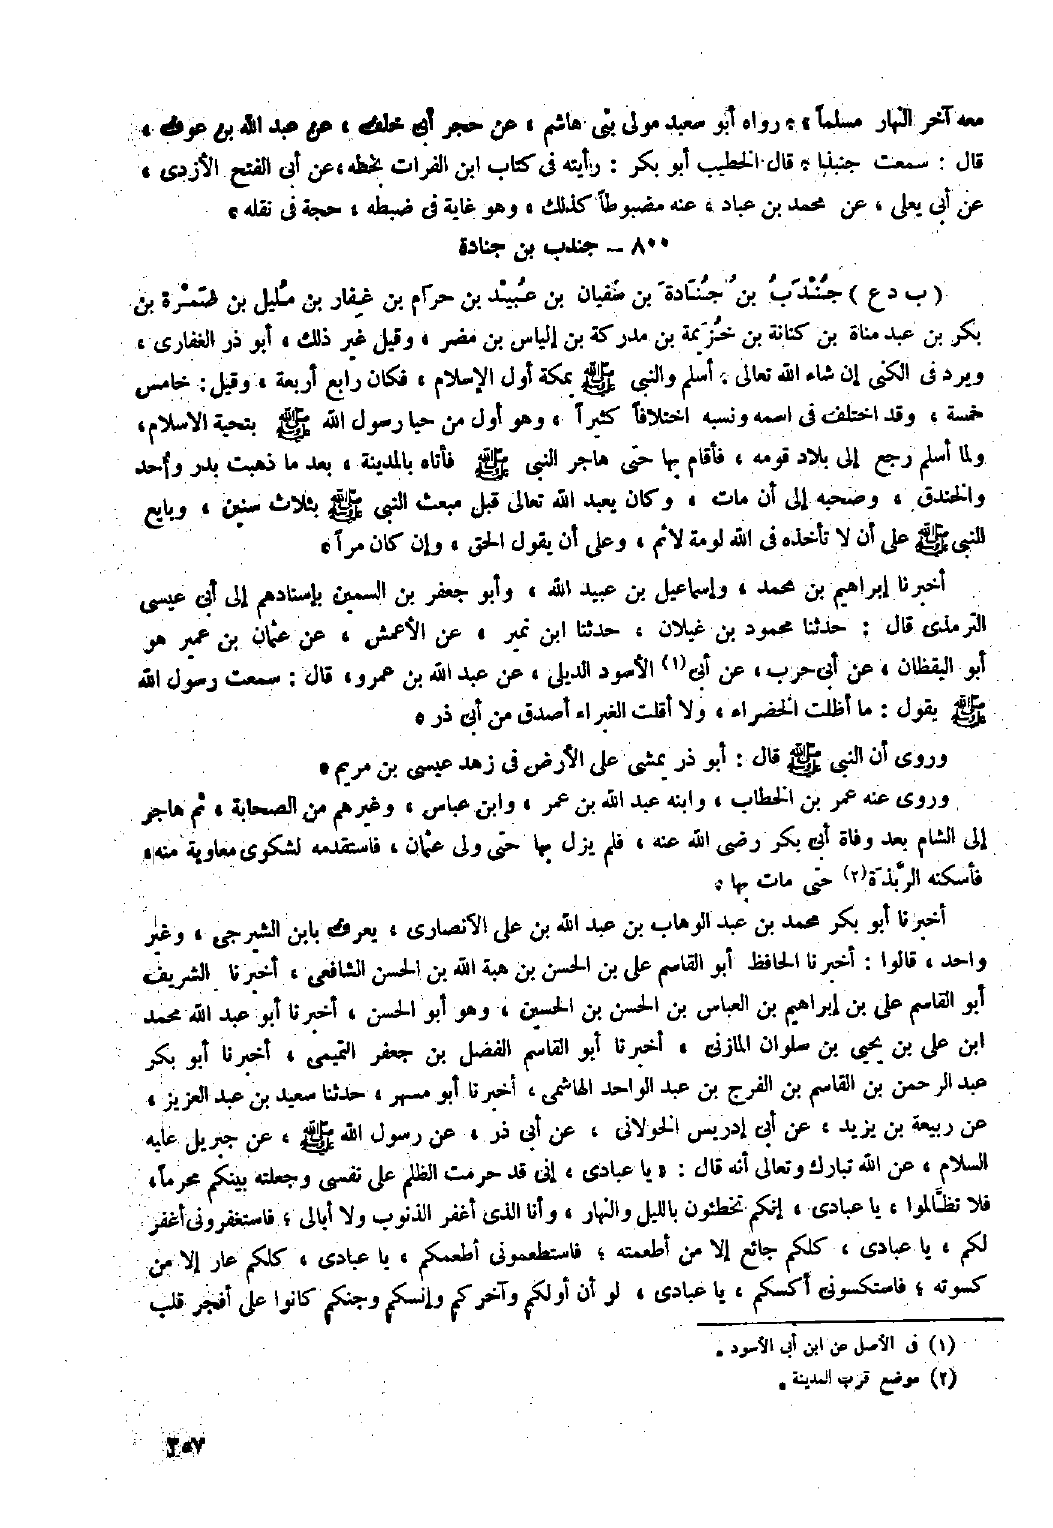 معه آخر النهار مسلماً ، ، رواه أبو سعيد مولى بنى هاشم ، عن حجر أبى خلف ، عن عبد الله بن عوف ،
قال : سمعت جنبذا ، قال الخطيب أبو بكر : رأيته فى كتاب ابن الفرات بخطه ، عن أبى الفتح الأزدى ،
عن أبي يعلى ، عن محمد بن عباد ، عنه مضبوطاً كذلك ، وهو غاية فى ضبطه ، حجة فى نقله ،
٨٠٠ – جندب بن جنادة
( ب د ع ) جُنْدَبُ بن جُنَادة بن سُفيان بن عُبَيْد بن حرام بن غِفار بن مُليل بن ضَمْرة بن
بكر بن عبد مناة بن كنانة بن خُزَيمة بن مدركة بن إلياس بن مضر ، وقيل غير ذلك ، أبو ذر الغفارى ،
ويرد فى الكنى إن شاء الله تعالى ، أسلم والنبي ﷺ بمكة أول الإسلام ، فكان رابع أربعة ، وقيل : خامس
خمسة ، وقد اختلف فى اسمه ونسبه اختلافاً كثيراً ، وهو أول من حيا رسول الله ﷺ بتحية الاسلام ،
ولما أسلم رجع إلى بلاد قومه ، فأقام بها حتى هاجر النبي ﷺ فأتاه بالمدينة ، بعد ما ذهبت بدر وأحد
والخندق ، وصحبه إلى أن مات ، وكان يعبد الله تعالى قبل مبعث النبي ﷺ بثلاث سنين ، وبايع
النبي ﷺ على أن لا تأخذه فى الله لومة لائم ، وعلى أن يقول الحق ، وإن كان مراً ،
أخبرنا إبراهيم بن محمد ، وإسماعيل بن عبيد الله ، وأبو جعفر بن السمين بإسنادهم إلى أبي عيسى
الترمذى قال : حدثنا محمود بن غيلان ، حدثنا ابن نمير ، عن الأعمش ، عن عثمان بن عمير هو
أبو اليقظان ، عن أبى حرب ، عن أبى (١) الأسود الديلى ، عن عبد الله بن عمرو ، قال : سمعت رسول الله
ﷺ يقول : ما أظلت الخضراء ، ولا أقلت الغبراء أصدق من أبى ذر ،
وروى أن النبي ﷺ قال : أبو ذر يمشى على الأرض فى زهد عيسى بن مريم ،
وروى عنه عمر بن الخطاب ، وابنه عبد الله بن عمر ، وابن عباس ، وغيرهم من الصحابة ، ثم هاجر
إلى الشام بعد وفاة أبى بكر رضى الله عنه ، فلم يزل بها حتى ولى عثمان ، فاستقدمه لشكوى معاوية منه ،
فأسكنه الرَّبَذة (٢) حتى مات بها ،
أخبرنا أبو بكر محمد بن عبد الوهاب بن عبد الله بن على الأنصارى ، يعرف بابن الشيرجي ، وغير
واحد ، قالوا : أخبرنا الحافظ أبو القاسم على بن الحسن بن هبة الله بن الحسن الشافعى ، أخبرنا الشريف
أبو القاسم على بن إبراهيم بن العباس بن الحسن بن الحسين ، وهو أبو الحسن ، أخبرنا أبو عبد الله محمد
ابن على بن يحيى بن سلوان المازنى ، أخبرنا أبو القاسم الفضل بن جعفر التميمى ، أخبرنا أبو بكر
عبد الرحمن بن القاسم بن الفرج بن عبد الواحد الهاشمى ، أخبرنا أبو مسهر ، حدثنا سعيد بن عبد العزيز ،
عن ربيعة بن يزيد ، عن أبى إدريس الخولانى ، عن أبى ذر ، عن رسول الله ﷺ ، عن جبريل عليه
السلام ، عن الله تبارك وتعالى أنه قال : « يا عبادى ، إنى قد حرمت الظلم على نفسى وجعلته بينكم محرماً ،
فلا تظالموا ، يا عبادى ، إنكم تخطئون بالليل والنهار ، وأنا الذى أغفر الذنوب ولا أبالى ؛ فاستغفرونى أغفر
لكم ، يا عبادى ، كلكم جائع إلا من أطعمته ؛ فاستطعمونى أطعمكم ، يا عبادى ، كلكم عار إلا من
كسوته ؛ فاستكسونى أكسكم ، يا عبادى ، لو أن أولكم وآخركم وإنسكم وجنكم كانوا على أفجر قلب
(١) فى الأصل عن ابن أبى الأسود .
(٢) موضع قرب المدينة .
٣٥٧